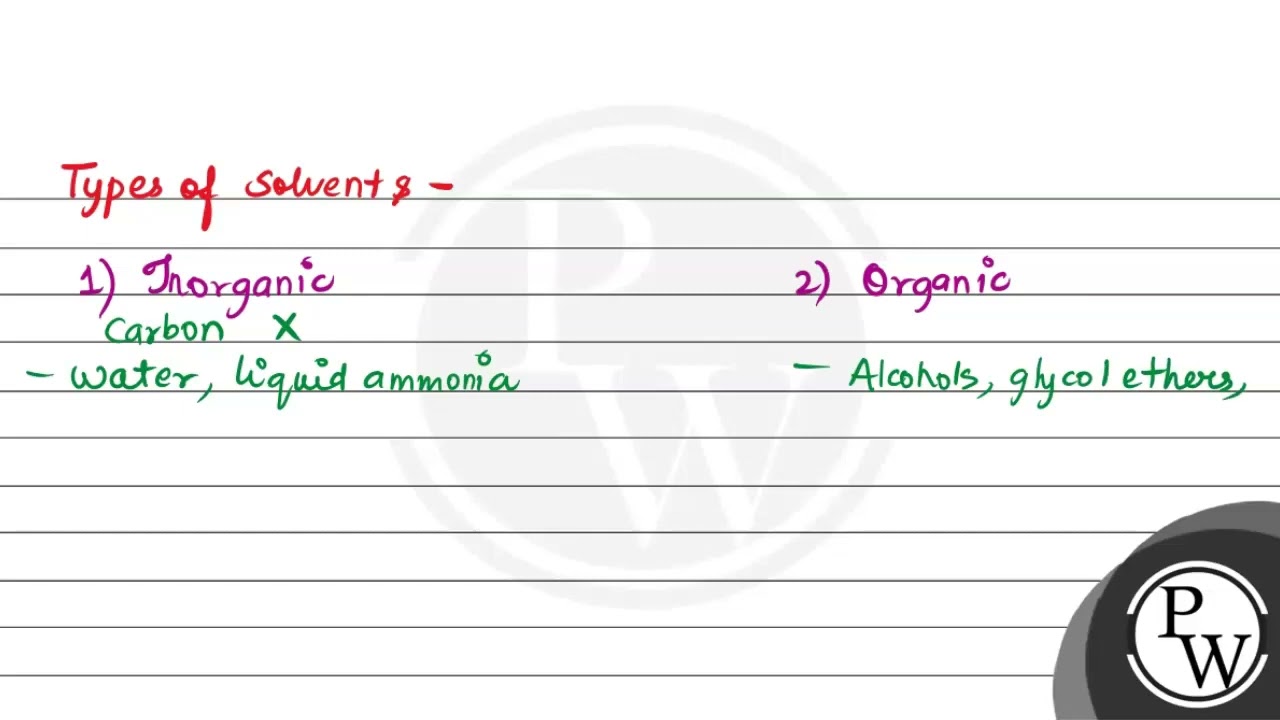 Types of solvents -
1) Inorganic
2) Organic
Carbon X
- Water, liquid ammonia
- Alcohols, glycol ethers,
PW
PW